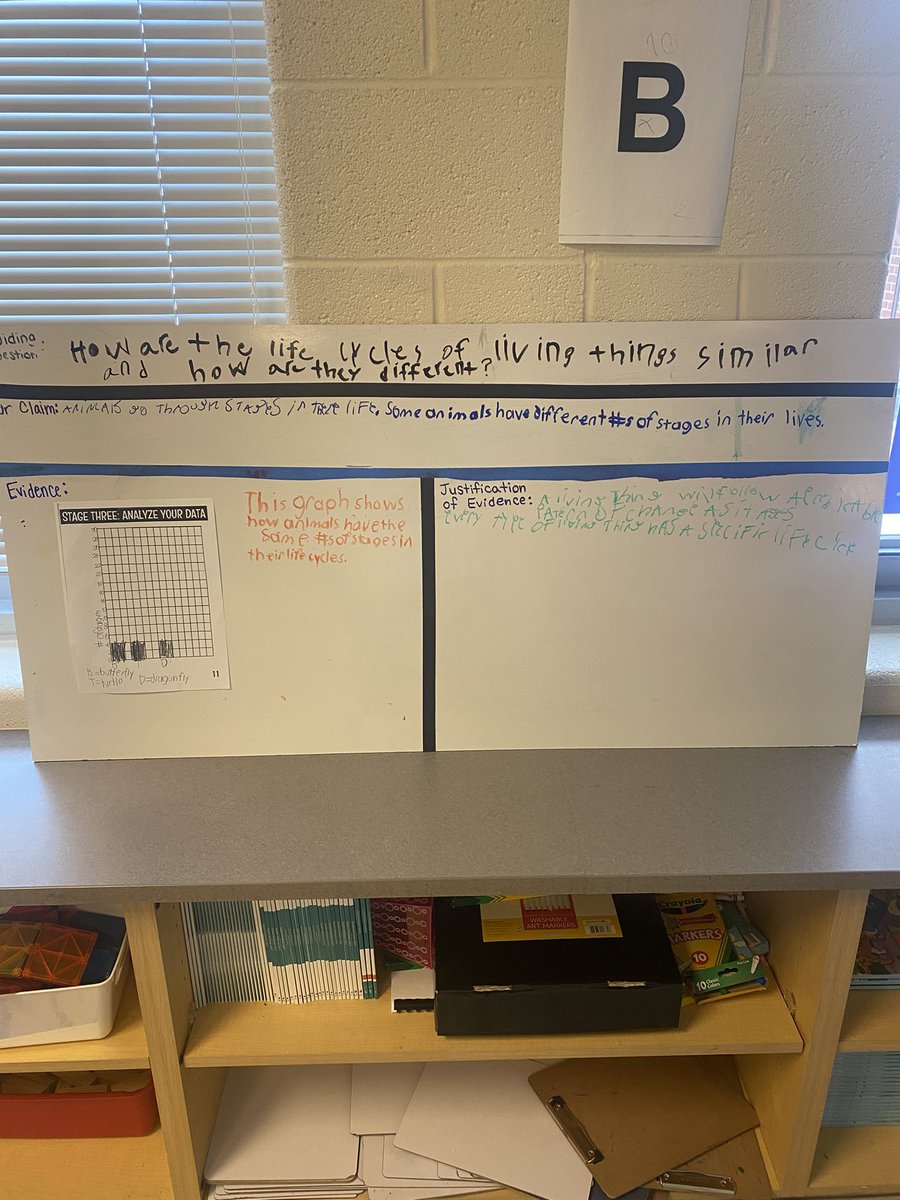 B
iding
estion:
How are the life cycles of living things similar
and how are they different?
ur Claim: ANIMALS go THROUGH STAGES in there liFe, Some animals have different #s of stages in their lives.
Evidence:
STAGE THREE: ANALYZE YOUR DATA
# of stages
B T D
B=butterfly
T=turtle D=dragonfly
11
This graph shows
how animals have the
Same #s of stages in
their life cycles.
Justification
of Evidence:
A living Thing will follow A
PATErn OF change AS iT AgeS
Every Type OF living Thing HAS A SPeciFic liFe
WASHABLE
ART MARKERS
Crayola
MARKERS
10
10